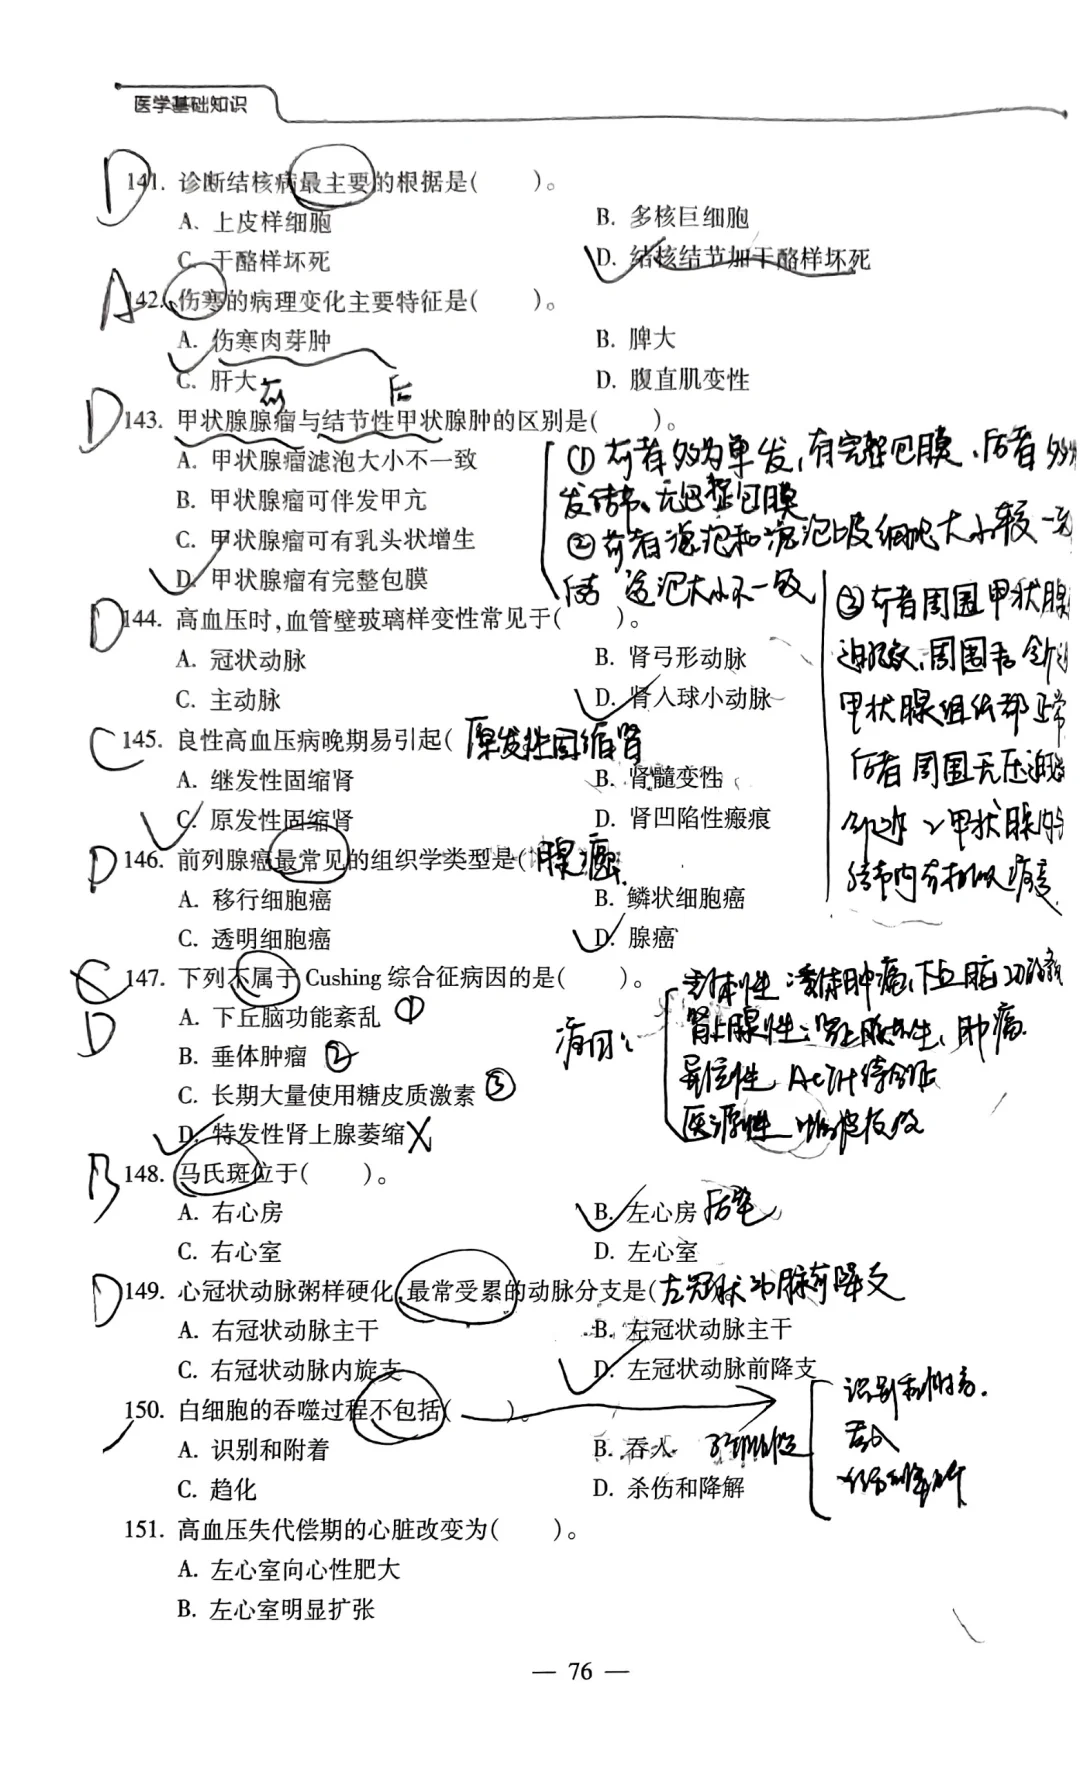 医学基础知识
D 141. 诊断结核病最主要的根据是(  )。
A. 上皮样细胞 B. 多核巨细胞
C. 干酪样坏死 D. 结核结节加干酪样坏死
A 142. 伤寒的病理变化主要特征是(  )。
A. 伤寒肉芽肿 B. 脾大
C. 肝大 D. 腹直肌变性
前 后
D 143. 甲状腺腺瘤与结节性甲状腺肿的区别是(  )。
A. 甲状腺瘤滤泡大小不一致
B. 甲状腺瘤可伴发甲亢
C. 甲状腺瘤可有乳头状增生
D. 甲状腺瘤有完整包膜
①前者多为单发,有完整包膜、后者多
发结节、无完整包膜
②前者滤泡和滤泡上皮细胞大小较一致
后者滤泡大小不一致
③前者周围甲状腺
甲状腺组织都正常
后者周围无压迫
D 144. 高血压时,血管壁玻璃样变性常见于(  )。
A. 冠状动脉 B. 肾弓形动脉
C. 主动脉 D. 肾入球小动脉
C 145. 良性高血压病晚期易引起( 原发性固缩肾
A. 继发性固缩肾 B. 肾髓变性
C. 原发性固缩肾 D. 肾凹陷性瘢痕
D 146. 前列腺癌最常见的组织学类型是( 腺癌
A. 移行细胞癌 B. 鳞状细胞癌
C. 透明细胞癌 D. 腺癌
147. 下列不属于 Cushing 综合征病因的是(  )。
D A. 下丘脑功能紊乱 ①
B. 垂体肿瘤 ②
C. 长期大量使用糖皮质激素 ③
D. 特发性肾上腺萎缩 X
病因:
垂体性:垂体肿瘤、下丘脑功能紊
肾上腺性:肾上腺增生、肿瘤
异位性 ACTH综合征
医源性
B 148. 马氏斑位于(  )。
A. 右心房 B. 左心房 后壁
C. 右心室 D. 左心室
D 149. 心冠状动脉粥样硬化,最常受累的动脉分支是( 左冠脉动脉前降支
A. 右冠状动脉主干 B. 左冠状动脉主干
C. 右冠状动脉内旋支 D. 左冠状动脉前降支
150. 白细胞的吞噬过程不包括(  )。
A. 识别和附着 B. 吞入
C. 趋化 D. 杀伤和降解
识别和附着.
吞入
杀伤和降解
151. 高血压失代偿期的心脏改变为(  )。
A. 左心室向心性肥大
B. 左心室明显扩张
— 76 —